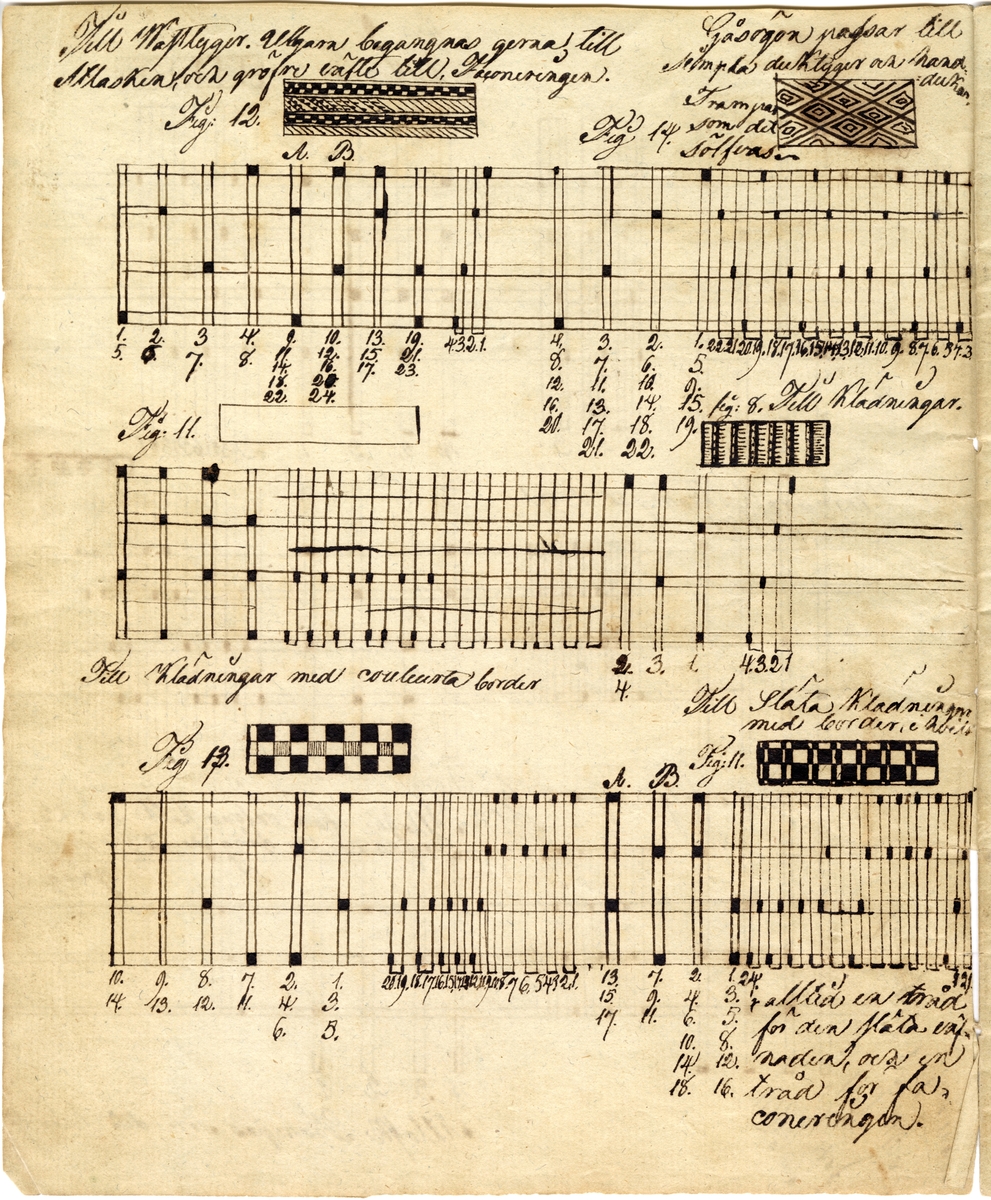 Till Wäfltyger. Ullgarn begangnas gerna till
Atlasken, och gröfre inflt till Faconeringen.
Fig: 12.
Gåsögon passar till
simpla duktyger och hand-
dukar.
Trampas
som det
sölfvas
Fig 14.
A. B.
1. 2. 3 4. 9. 10. 13. 19. 4.3.2.1.
5. 6. 7. 8. 11. 12. 15. 21.
14. 16. 17. 23.
18. 20.
22. 24.
4. 3. 2. 1. 22.21.20.19.18.17.16.15.14.13.12.11.10.9.8.7.6.5.4.3
8. 7. 6. 5.
12. 11. 10. 9.
16. 13. 14. 15.
20. 17. 18. 19.
21. 22.
Fig: 11.
fig: 8. Till Klädningar.
2. 3. 1. 4.3.2.1
4.
Till Klädningar med couleurta border
Till Släta Klädningar
med border, i
Fig 13.
Fig: 11.
A. B.
10. 9. 8. 7. 2. 1. 20.19.18.17.16.15.14.13.12.11.10.9.8.7.6.5.4.3.2.1.
14. 13. 12. 11. 4. 3.
6. 5.
13. 7. 2. 1. 24. 3.2.1
15. 9. 4. 3.
17. 11. 6. 5.
10. 8.
14. 12.
18. 16.
alltid en tråd
för den släta
naden, och en
tråd för fa-
coneringen.